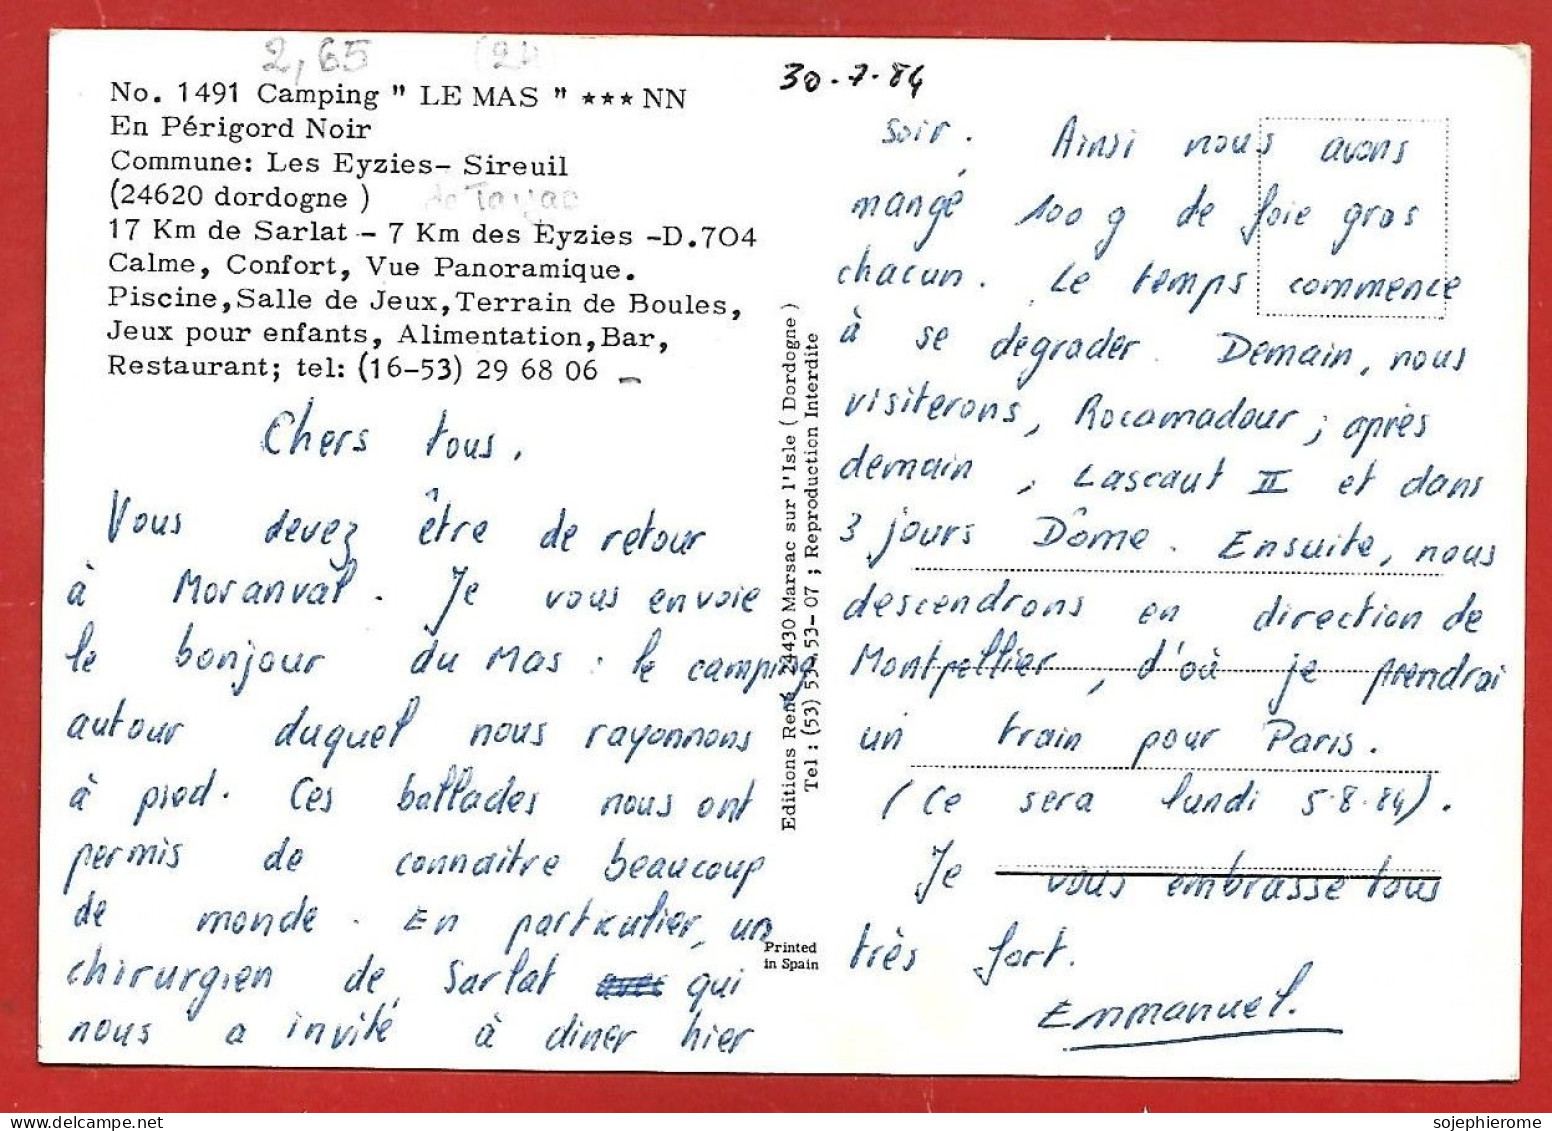 2,65 (24)
No. 1491 Camping " LE MAS " ★★★ NN
En Périgord Noir
Commune: Les Eyzies- Sireuil
(24620 dordogne ) de Tayac
17 Km de Sarlat - 7 Km des Eyzies -D.704
Calme, Confort, Vue Panoramique.
Piscine,Salle de Jeux,Terrain de Boules,
Jeux pour enfants, Alimentation,Bar,
Restaurant; tel: (16-53) 29 68 06
Chers tous,
Vous devez être de retour
à Moranval. Je vous envoie
le bonjour du Mas : le camping
autour duquel nous rayonnons
à pied. Ces ballades nous ont
permis de connaitre beaucoup
de monde. En particulier, un
chirurgien de Sarlat avec qui
nous a invité à diner hier
Editions René 24430 Marsac sur l'Isle ( Dordogne )
Tel : (53) 53-53-07 ; Reproduction Interdite
Printed
in Spain
30-7-84
soir. Ainsi nous avons
mangé 100 g de foie gras
chacun. Le temps commence
à se degrader. Demain, nous
visiterons, Rocamadour ; après
demain, Lascaut II et dans
3 jours Dôme. Ensuite, nous
descendrons en direction de
Montpellier, d'où je prendrai
un train pour Paris.
(Ce sera lundi 5-8-84).
Je vous embrasse tous
très fort.
Emmanuel.
sojephierome